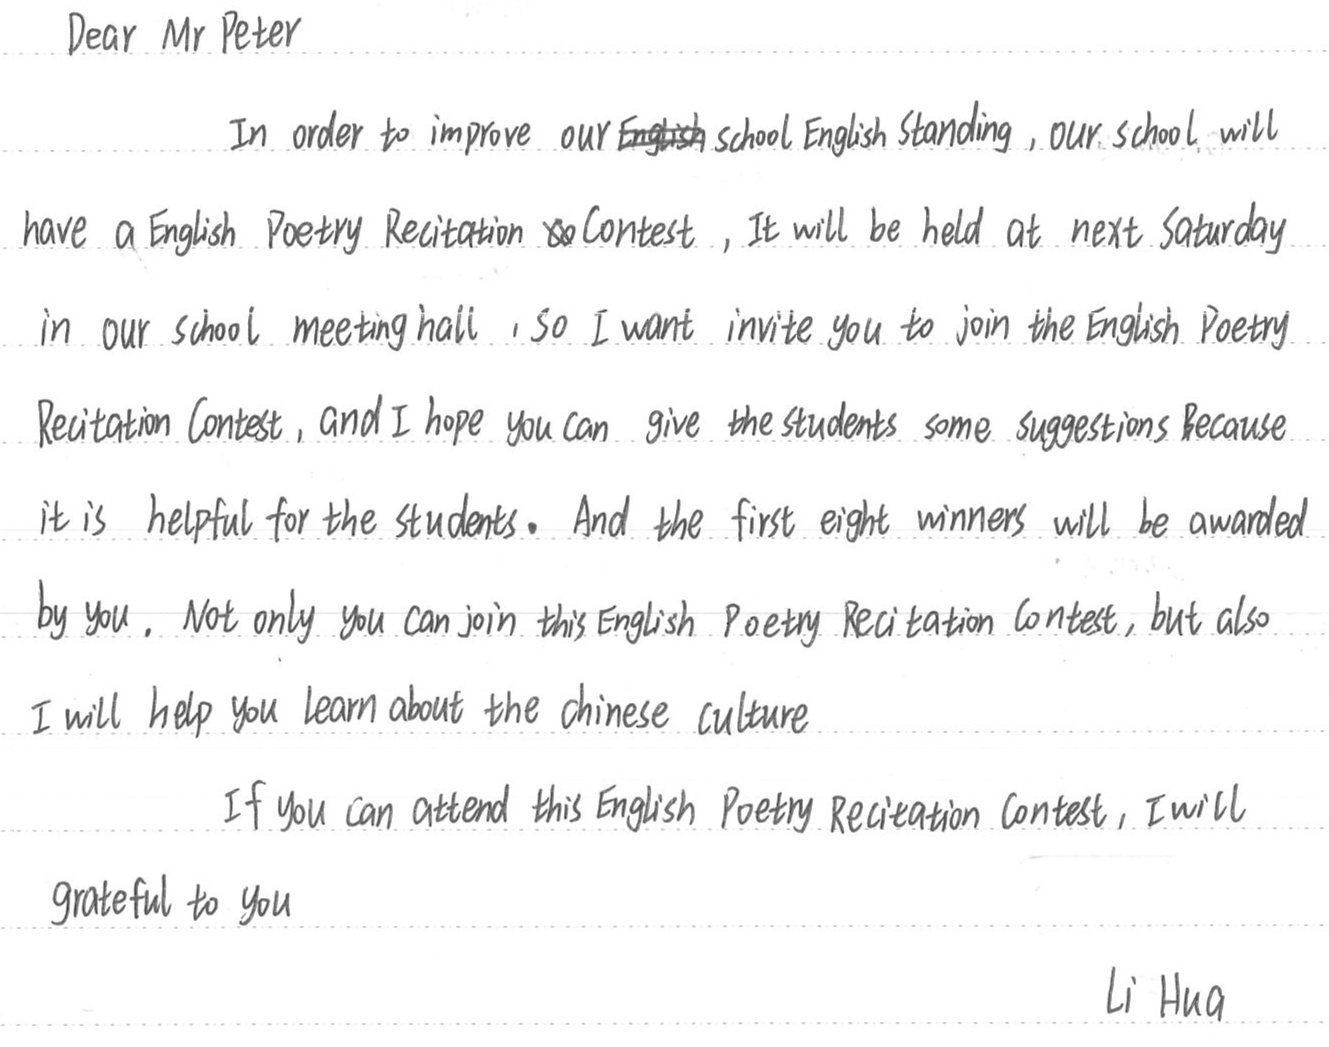 Dear Mr Peter
In order to improve our English school English Standing, our school will
have a English Poetry Recitation Contest, It will be held at next Saturday
in our school meeting hall, So I want invite you to join the English Poetry
Recitation Contest, and I hope you can give the students some suggestions Because
it is helpful for the students. And the first eight winners will be awarded
by you. Not only you can join this English Poetry Recitation Contest, but also
I will help you learn about the chinese culture
If you can attend this English Poetry Recitation Contest, I will
grateful to you
Li Hua